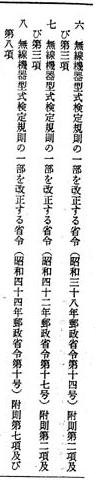 六　無線機器型式検定規則の一部を改正する省令（昭和三十八年郵政省令第十四号）附則第二項及
び第三項
七　無線機器型式検定規則の一部を改正する省令（昭和四十二年郵政省令第十七号）附則第二項及
び第三項
八　無線機器型式検定規則の一部を改正する省令（昭和四十四年郵政省令第十号）附則第七項及び
第八項